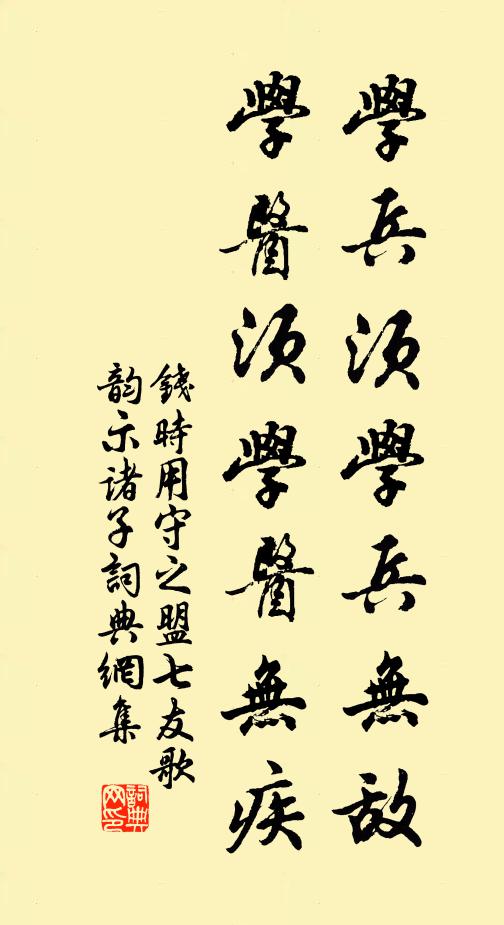 學兵須學兵無敵
學醫須學醫無疾
錢時用守之盟七友歌
韵示诸子詞典網集
詞典
网印